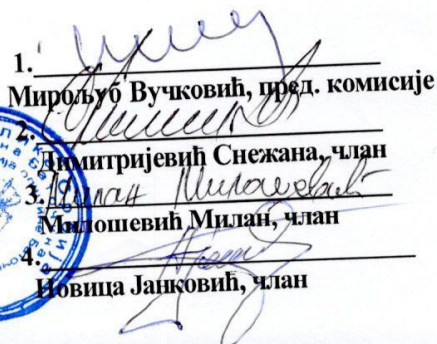 1.
Мирољуб Вучковић, пред. комисије
2.
Димитријевић Снежана, члан
3. Милан Милошевић
Милошевић Милан, члан
4.
Новица Јанковић, члан